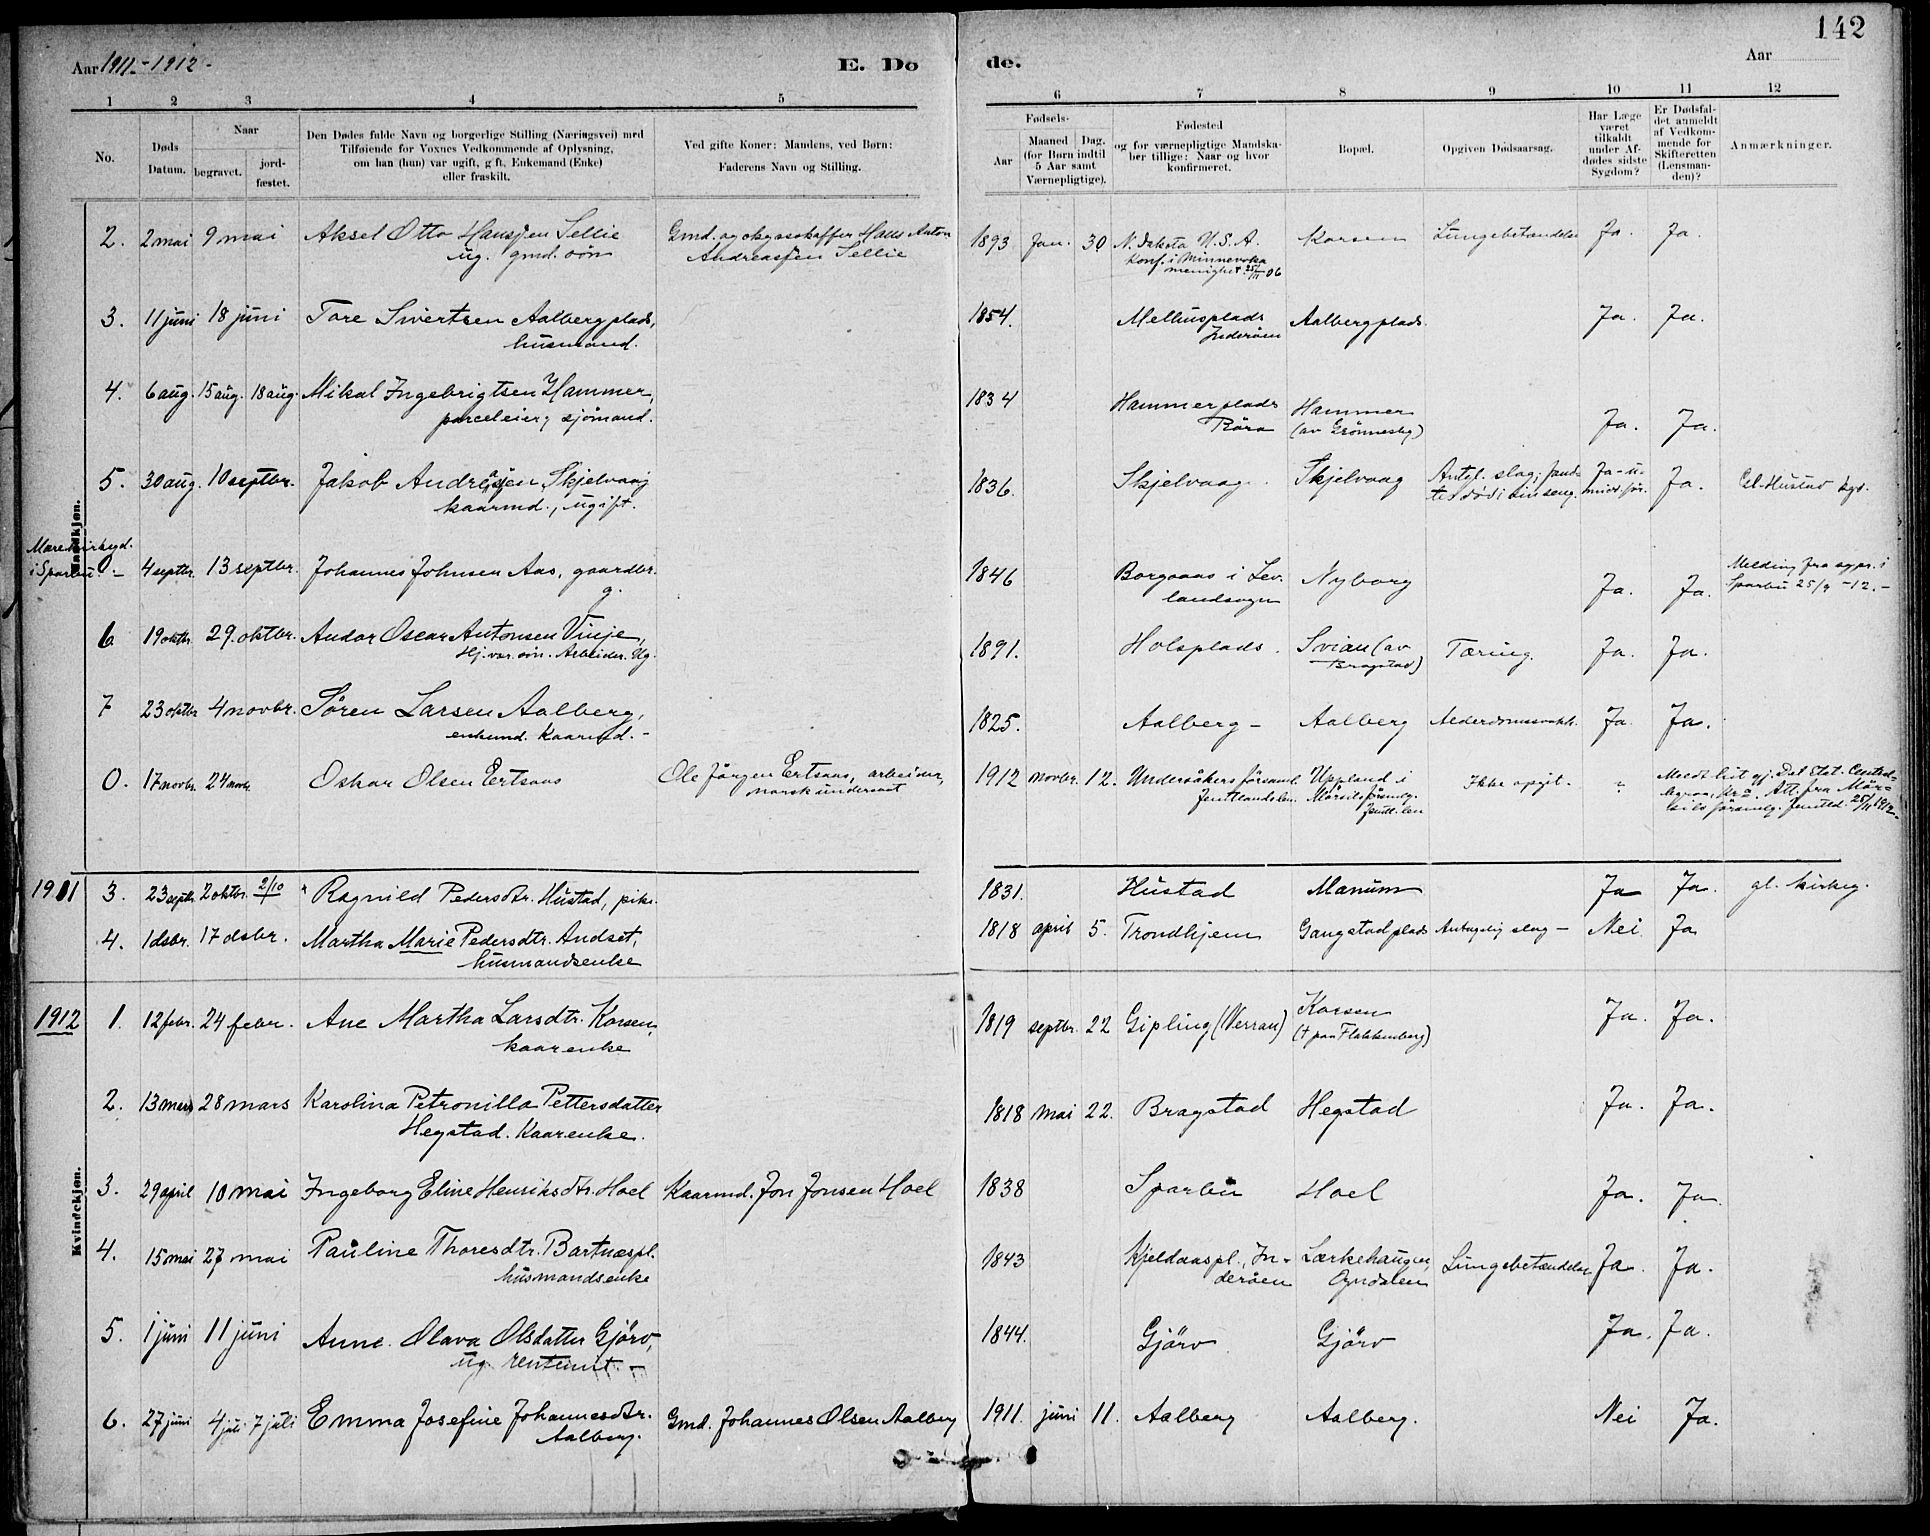 142
Aar 1911.-1912.-
E. Dø
de.
Aar
1 2 3 4 5 6 7 8 9 10 11 12
No.
Døds Datum.
Naar
begravet.
jordfæstet.
Den Dødes fulde Navn og borgerlige Stilling (Næringsvei) med
Tilføiende for Voxnes Vedkommende af Oplysning,
om han (hun) var ugift, gift, Enkemand (Enke)
eller fraskilt.
Ved gifte Koner: Mandens, ved Børn:
Faderens Navn og Stilling.
Fødsels-
Aar
Maaned Dag.
(for Børn indtil
5 Aar samt
Værnepligtige).
Fødested
og for værnepligtige Mandskaber tillige: Naar og hvor
konfirmeret.
Bopæl.
Opgiven Dødsaarsag.
Har Læge
været
tilkaldt
under Afdødes sidste
Sygdom?
Er Dødsfaldet anmeldt
af Vedkommende for
Skifteretten
(Lensmanden)?
Anmærkninger.
Mandkjøn.
2. 2 mai 9 mai Aksel Otto Hansen Sellie Gmd. og skysskaffer Hans Anton 1893 Jan. 30 N. Dakota U.S.A. Korsen Lungebetændelse Ja. Ja.
ug. gmd. søn Andreassen Sellie Konf. i Minnevoka
menighet 25/11 06
3. 11 juni 18 juni Tore Sivertsen Aalbergplads, 1854. Melhusplads Aalbergplads. Ja. Ja.
husmand. Inderøen
4. 6 aug. 15 aug. 18 aug. Mikal Ingebrigtsen Hammer, 1834 Hammerplads Hammer
parceleier, sjömand. Röra (av Grönnesby) Ja. Ja.
5. 30 aug. 10 septbr. Jakob Andreassen Skjelvaag 1836. Skjelvaag. Skjelvaag Antgl. slag; fund- Ja-u- Ja. Gl. Hustad kgd.
kaarmd., ugift. tes död i sin seng.
Mære kirkegd.
i Sparbu. 0.- 4 septbr. 13 septbr. Johannes Johnsen Aas, gaardbr. 1846 Borgaaas i Lev. Nyborg Ja. Ja. Melding fra sgpr. i
g. landsogn Sparbu 25/9-12.-
6 19 oktbr. 29. oktbr. Andor Oscar Antonsen Vinje, 1891. Holsplads. Svian (av Tæring. Ja. Ja.
Hj.vær. søn. Arbeider. Ug. Bragstad)
7 23 oktbr 4 novbr. Søren Larsen Aalberg, 1825. Aalberg- Aalberg Aelderdomssvakh. Ja Ja.
enkemd. Kaarmd.-
0. 17 novbr. 24 novbr. Oskar Olsen Ertsaas Ole Jörgen Ertsaas, arbeider, 1912 novbr. 12. Undersåkers församl. Uppland i Ikke opgit. "
norsk undersaat Jemtlands len. Mörsils församlg.
Jemtl. len
1911 3. 23 septb. 2 oktbr. 2/10 Ragnild Pedersdtr. Hustad, pike. 1831. Hustad Manum Ja Ja. gl. kirkeg.
4. 1 dsbr. 17 dsbr. Martha Marie Pedersdtr. Andset, 1818 april 5. Trondhjem Gangstadplads Antagelig slag- Nei Ja
husmandsenke
Kvindekjøn.
1912 1. 12 febr. 24 febr. Ane Martha Larsdtr. Korsen, 1819 septbr. 22 Gipling (Verran) Korsen Ja. Ja.
kaarenke († paa Flakkenberg)
2. 13 mars 28 mars Karolina Petronilla Pettersdatter 1818 mai 22. Bragstad Hegstad Ja. Ja.
Hegstad. Kaarenke.
3. 29 april 10 mai Ingeborg Eline Henriksdtr. Hoel Kaarmd. Jon Jonsen Hoel 1838 Sparbu Hoel Ja. Ja.
4. 15 mai 27 mai Pauline Thoresdtr. Bartnæspl. 1843 Kjeldaaspl., In- Lærkehaugen, Lungebetændelse Ja. Ja.
husmandsenke deröen Oyndalen
5. 1 juni 11 juni Anne Olava Olsdatter Gjörv, 1844. Gjörv Gjörv Ja. Ja.
ug. rentenist.-
6. 27 juni 4 juli 7 juli Emma Josefine Johannesdtr. Gmd. Johannes Olsen Aalberg 1911. juni 11. Aalberg Aalberg. Nei Ja.
Aalberg.